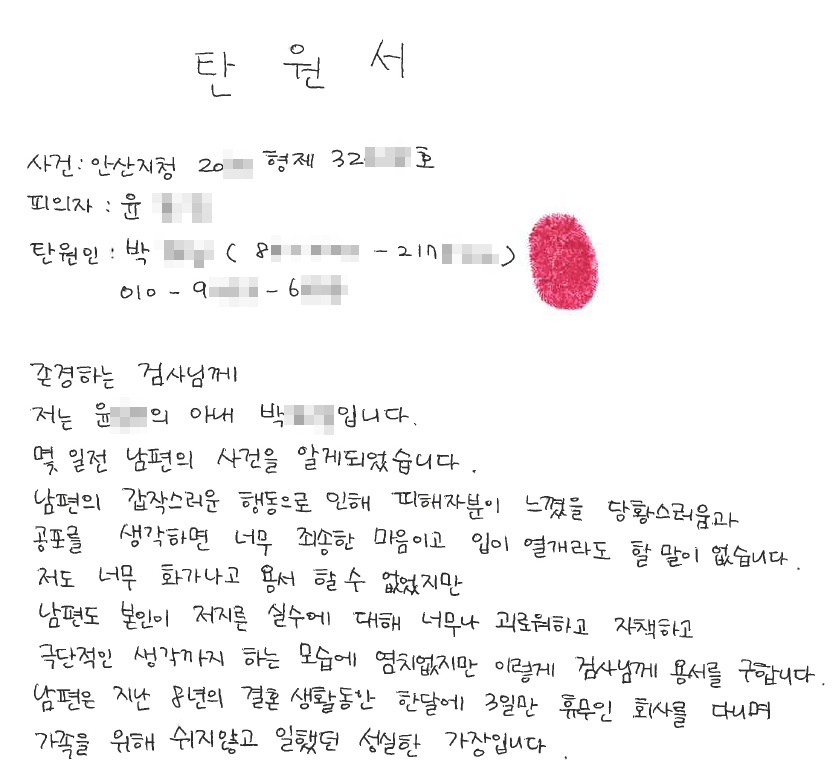 탄 원 서
사건 : 안산지청 20 형제 32 호
피의자 : 윤
탄원인 : 박 ( 8 - 217 )
010 - 9 - 6
존경하는 검사님께
저는 윤 의 아내 박 입니다.
몇 일전 남편의 사건을 알게되었습니다.
남편의 갑작스러운 행동으로 인해 피해자분이 느꼈을 당황스러움과
공포를 생각하면 너무 죄송한 마음이고 입이 열개라도 할 말이 없습니다.
저도 너무 화가나고 용서 할 수 없었지만
남편도 본인이 저지른 실수에 대해 너무나 괴로워하고 자책하고
극단적인 생각까지 하는 모습에 염치없지만 이렇게 검사님께 용서를 구합니다.
남편은 지난 8년의 결혼 생활동안 한달에 3일만 휴무인 회사를 다니며
가족을 위해 쉬지않고 일했던 성실한 가장입니다.